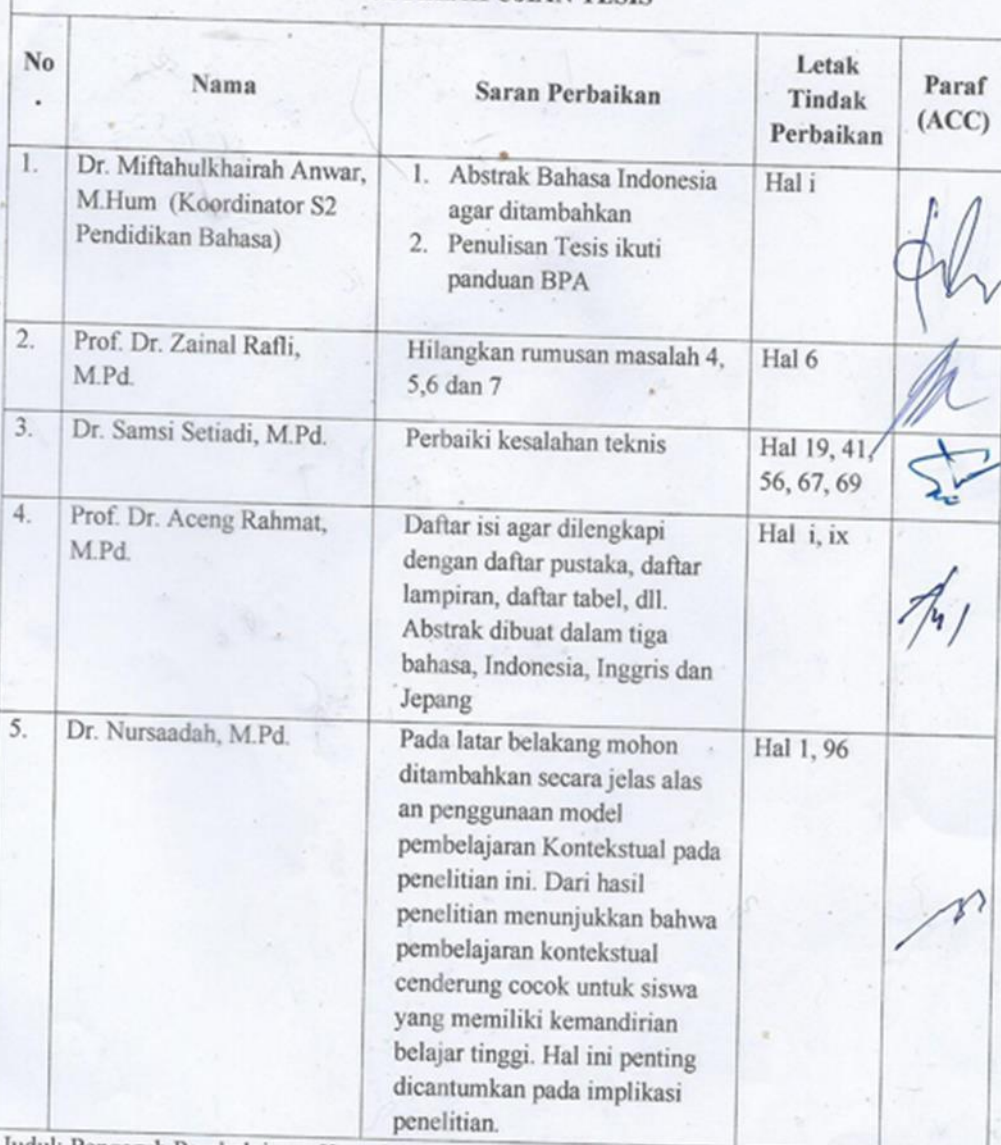 TESIS
No
.
Nama
Saran Perbaikan
Letak
Tindak
Perbaikan
Paraf
(ACC)
1.
Dr. Miftahulkhairah Anwar,
M.Hum (Koordinator S2
Pendidikan Bahasa)
1. Abstrak Bahasa Indonesia
agar ditambahkan
2. Penulisan Tesis ikuti
panduan BPA
Hal i
2.
Prof. Dr. Zainal Rafli,
M.Pd.
Hilangkan rumusan masalah 4,
5,6 dan 7
Hal 6
3.
Dr. Samsi Setiadi, M.Pd.
Perbaiki kesalahan teknis
Hal 19, 41,
56, 67, 69
4.
Prof. Dr. Aceng Rahmat,
M.Pd.
Daftar isi agar dilengkapi
dengan daftar pustaka, daftar
lampiran, daftar tabel, dll.
Abstrak dibuat dalam tiga
bahasa, Indonesia, Inggris dan
Jepang
Hal i, ix
5.
Dr. Nursaadah, M.Pd.
Pada latar belakang mohon
ditambahkan secara jelas alas
an penggunaan model
pembelajaran Kontekstual pada
penelitian ini. Dari hasil
penelitian menunjukkan bahwa
pembelajaran kontekstual
cenderung cocok untuk siswa
yang memiliki kemandirian
belajar tinggi. Hal ini penting
dicantumkan pada implikasi
penelitian.
Hal 1, 96